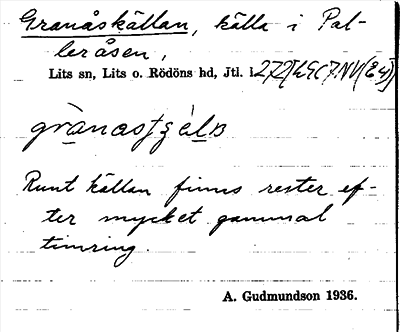 Granåskällan, källa i Pal-
leråsen,
Lits sn, Lits o. Rödöns hd, Jtl.
Runt källan finns rester ef-
ter mycket gammal
timring.
A. Gudmundson 1936.